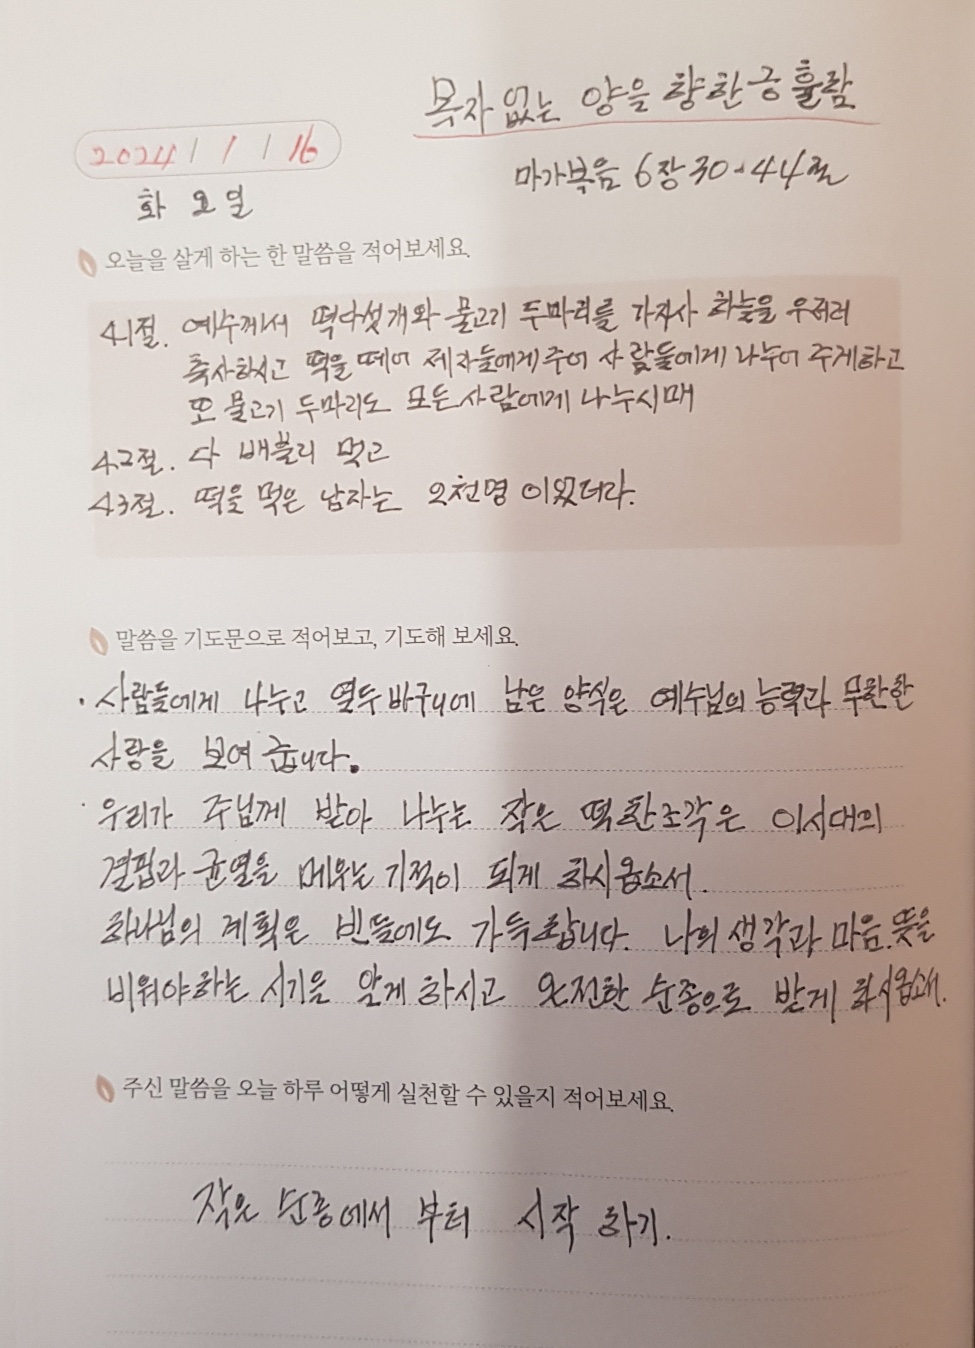 목자 없는 양을 향한 긍휼함
2024 / 1 / 16
마가복음 6장 30-44절
화요일
오늘을 살게 하는 한 말씀을 적어보세요.
41절. 예수께서 떡 다섯개와 물고기 두마리를 가지사 하늘을 우러러
축사하시고 떡을 떼어 제자들에게 주어 사람들에게 나누어 주게하고
또 물고기 두마리도 모든 사람에게 나누시매
42절. 다 배불리 먹고
43절. 떡을 먹은 남자는 오천명 이었더라.
말씀을 기도문으로 적어보고, 기도해 보세요.
· 사람들에게 나누고 열두 바구니에 남은 양식은 예수님의 능력과 무한한
사랑을 보여 줍니다.
· 우리가 주님께 받아 나누는 작은 떡 한조각은 이시대의
결핍과 균열을 메우는 기적이 되게 하시옵소서.
하나님의 계획은 빈들에도 가득합니다. 나의 생각과 마음.뜻을
비워야하는 시기을 알게 하시고 온전한 순종으로 받게 하시옵소서.
주신 말씀을 오늘 하루 어떻게 실천할 수 있을지 적어보세요.
작은 순종에서 부터 시작 하기.